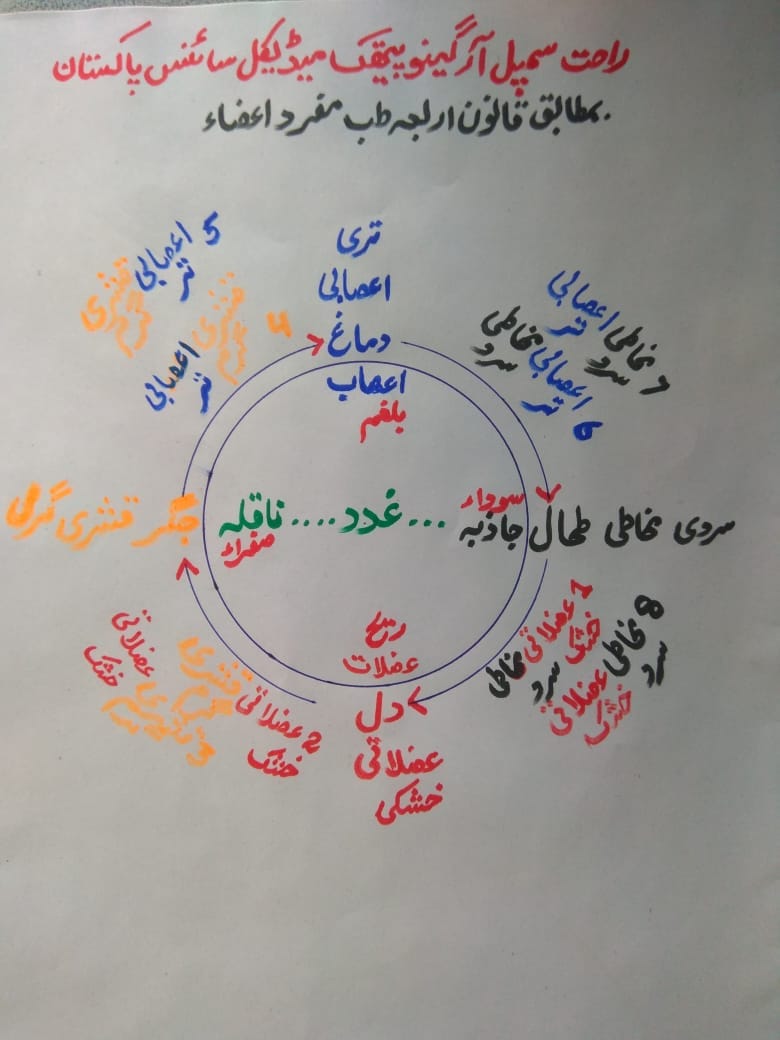 راحت سمپل آرگینو پیتھک میڈیکل سائنس پاکستان
بمطابق قانون اربعہ طب مفرد اعضاء
تری
اعصابی
دماغ
اعصاب
بلغم
5 اعصابی تر قشری گرم
4 قشری گرم اعصابی تر
7 مخاطی سرد اعصابی تر
6 اعصابی تر مخاطی سرد
جگر قشری گرمی
ناقلہ .... غدد ... جاذبہ
صفراء
سوداء
طحال مخاطی سردی
ریح
عضلات
دل
عضلاتی
خشکی
1 عضلاتی خشک مخاطی سرد
8 مخاطی سرد عضلاتی خشک
2 عضلاتی خشک قشری گرم
3 قشری گرم عضلاتی خشک